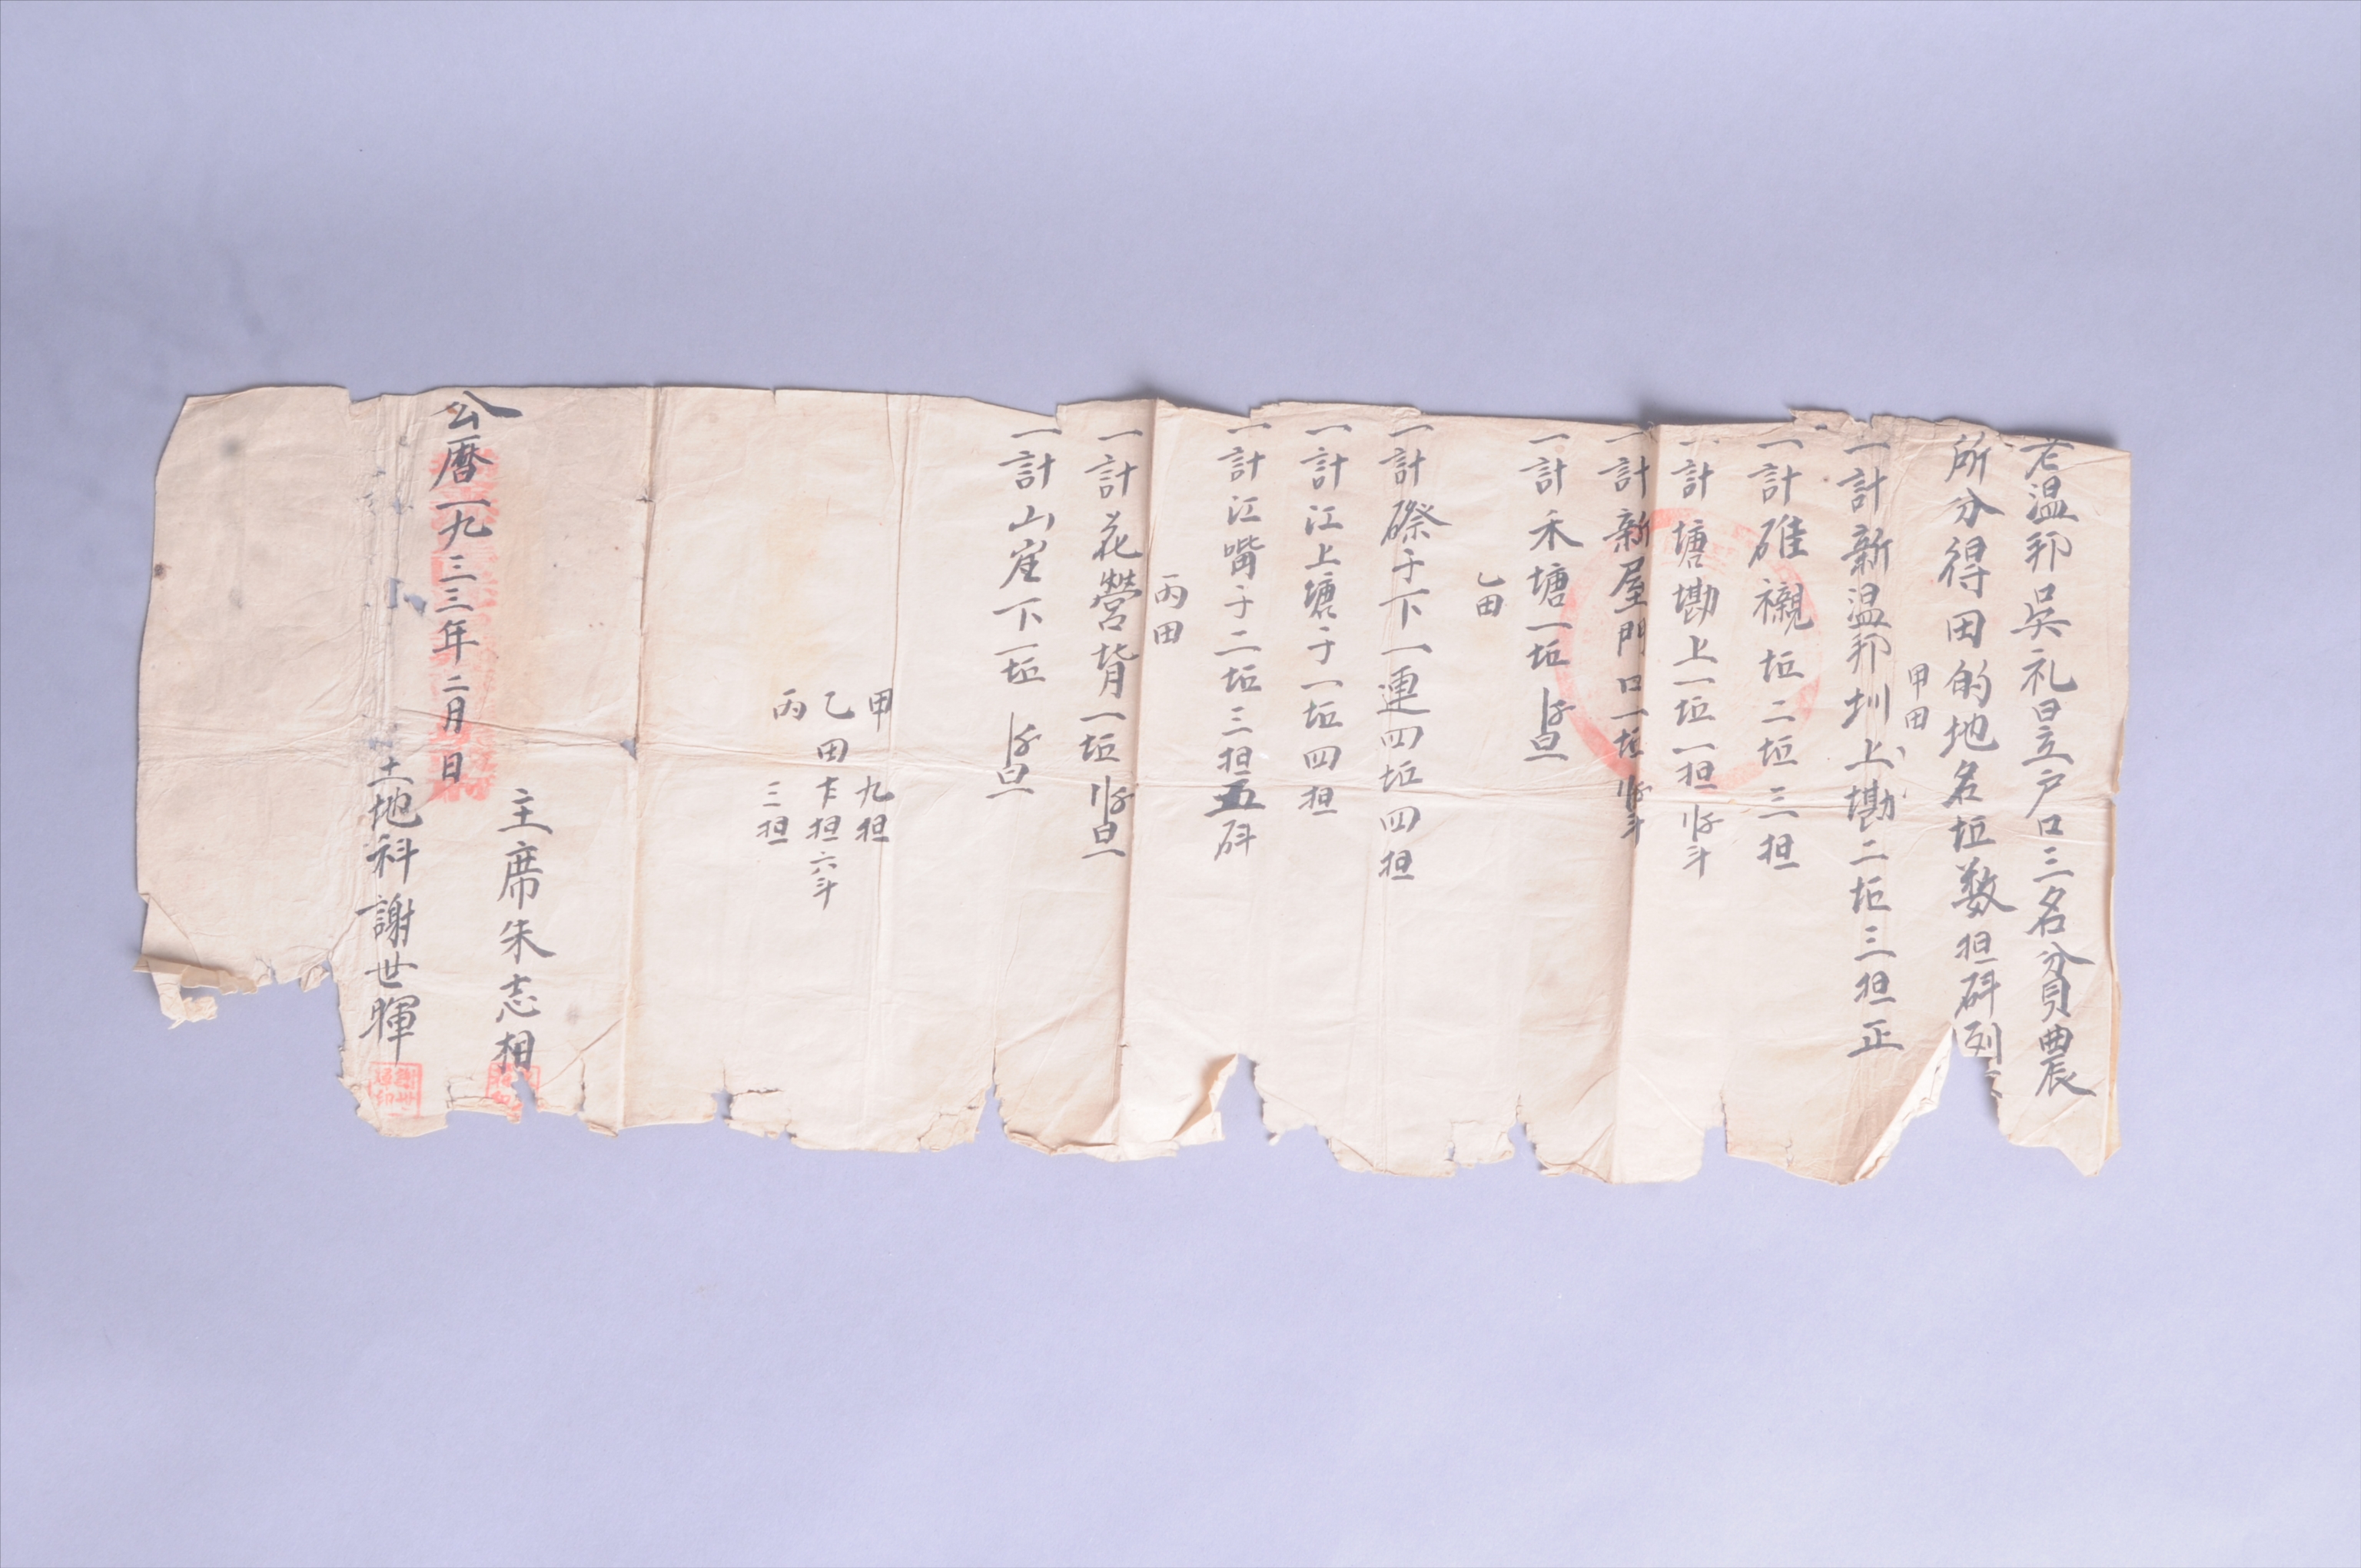 老温邦吴礼昱立户口三名分貟農
所分得田的地名坵数担䂖列
甲田
一計新温邦圳上墈二坵三担正
一計碓襯坵二坵三担
一計塘墈上一坵一担斗
一計新屋門口一坵斗
一計禾塘一坵
乙田
一計磜子下一連四坵四担
一計江上塘子一坵四担
一計江嘴子二坵三担五䂖
丙田
一計花營背一坵
一計山崖下一坵
甲 九担
乙田 担六斗
丙 三担
主席朱志相
公曆一九三三年二月 日
土地科謝世暉